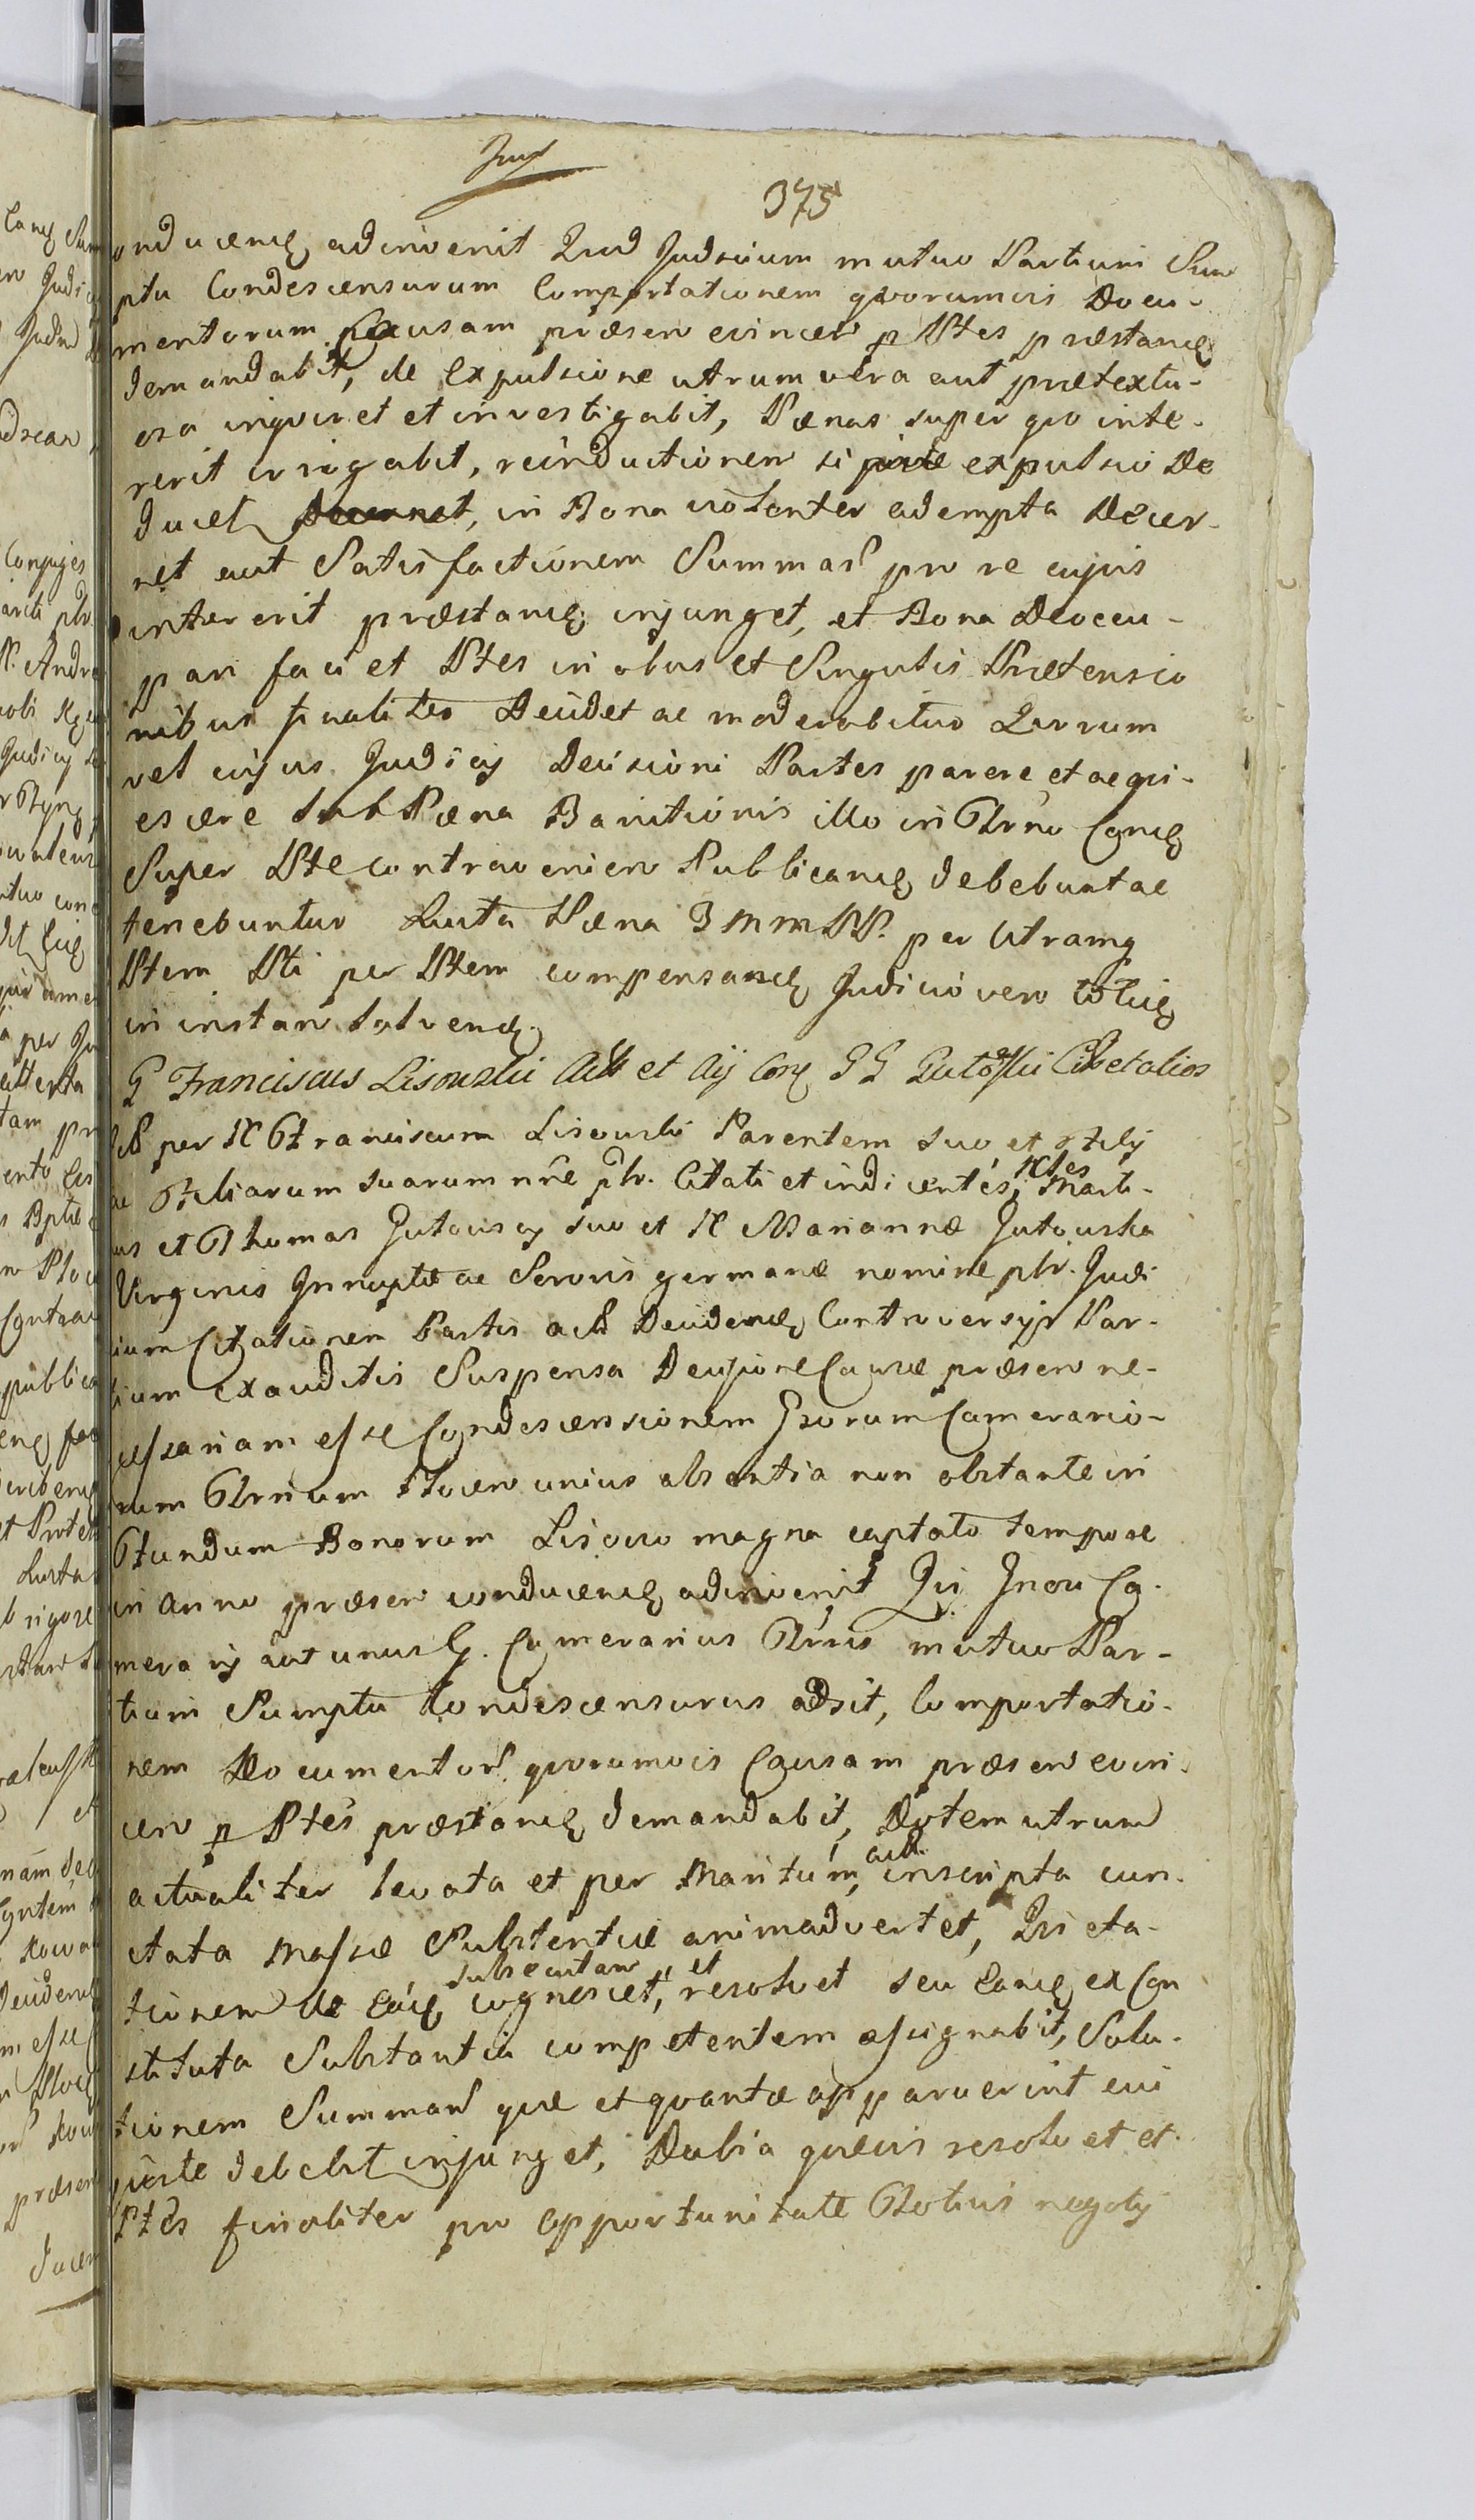 375
onducend adinvenit Quod Judicium mutuo Partium Sum
ptu Condescensurum Comportationem qvorumvis Docu-
mentorum Causam præsen evincen p Ptes præstand
demandabit, de Expulsione utrum vera aut prætextu-
osa inqviret et investigabit, Pænas super qvo inte-
rerit irrogabit, reinductionem si expulsio De
ducet, in Bona violenter adempta Decer-
net aut Satisfactionem Summar pro re cujus
intererit præstand injunget, et Bona Deoccu-
pari faciet Ptes in obus et Singulis Prætensio
nibus finaliter Decidet ac moderabitur Qvorum
vel cujus Judicy Decisioni Partes parere et acqvi-
escere sub Pæna Banitionis illo in Trno
Super Pte contravenien Publicand debebunt ac
tenebuntur Luita Pæna 3 M m PP. per Utramq
Ptem Pti per Ptem compensand Judicio vero
in instan Solvend.
G Franciscus Lisowski Act et Aly Cont GG Gutowskii Citetalios
per M Franciscum Lisowski Parentem suo et Fily
ac Filiarum suarum nne ptr. Citati et indicentes, Mles Marti-
us et Thomas Gutowscy suo et M Mariannæ Gutowska
Virginis Innuptæ ac Sororis germanæ nomine ptr. Judi
cium Citationem Partis act Decidend Controversys Par-
tium Exauditis Suspensa Decisione Causæ præsen ne-
cessariam esse Condescensionem Gsorum Camerario-
rum Trnium Plocen unius absentia non obstante in
Fundum Bonorum Lisowo magna captato tempore
in anno præsen conducend adinvenit Qvi Gnosi Ca-
merary aut unus G. Camerarius Trris mutuo Par-
tium Sumptu Condescensurus adsit, Comportatio-
nem Documentor qvorumvis Causam præsen evin-
cen p Ptes præstand demandabit, Dotem utrum
actualiter levata et per Maritum, act. inscripta cun-
ctata Massæ Substantiæ animadvertet,
tionem de subsecutam cognoscet, et resolvet seu ex Con
stituta Substantia competentem assignabit, Solu-
tionem Summar qvæ et qvantæ apparuerint cui
juste debebit injunget, Dubia qvævis resolvet et
Ptes finaliter pro opportunitate Totius negoty